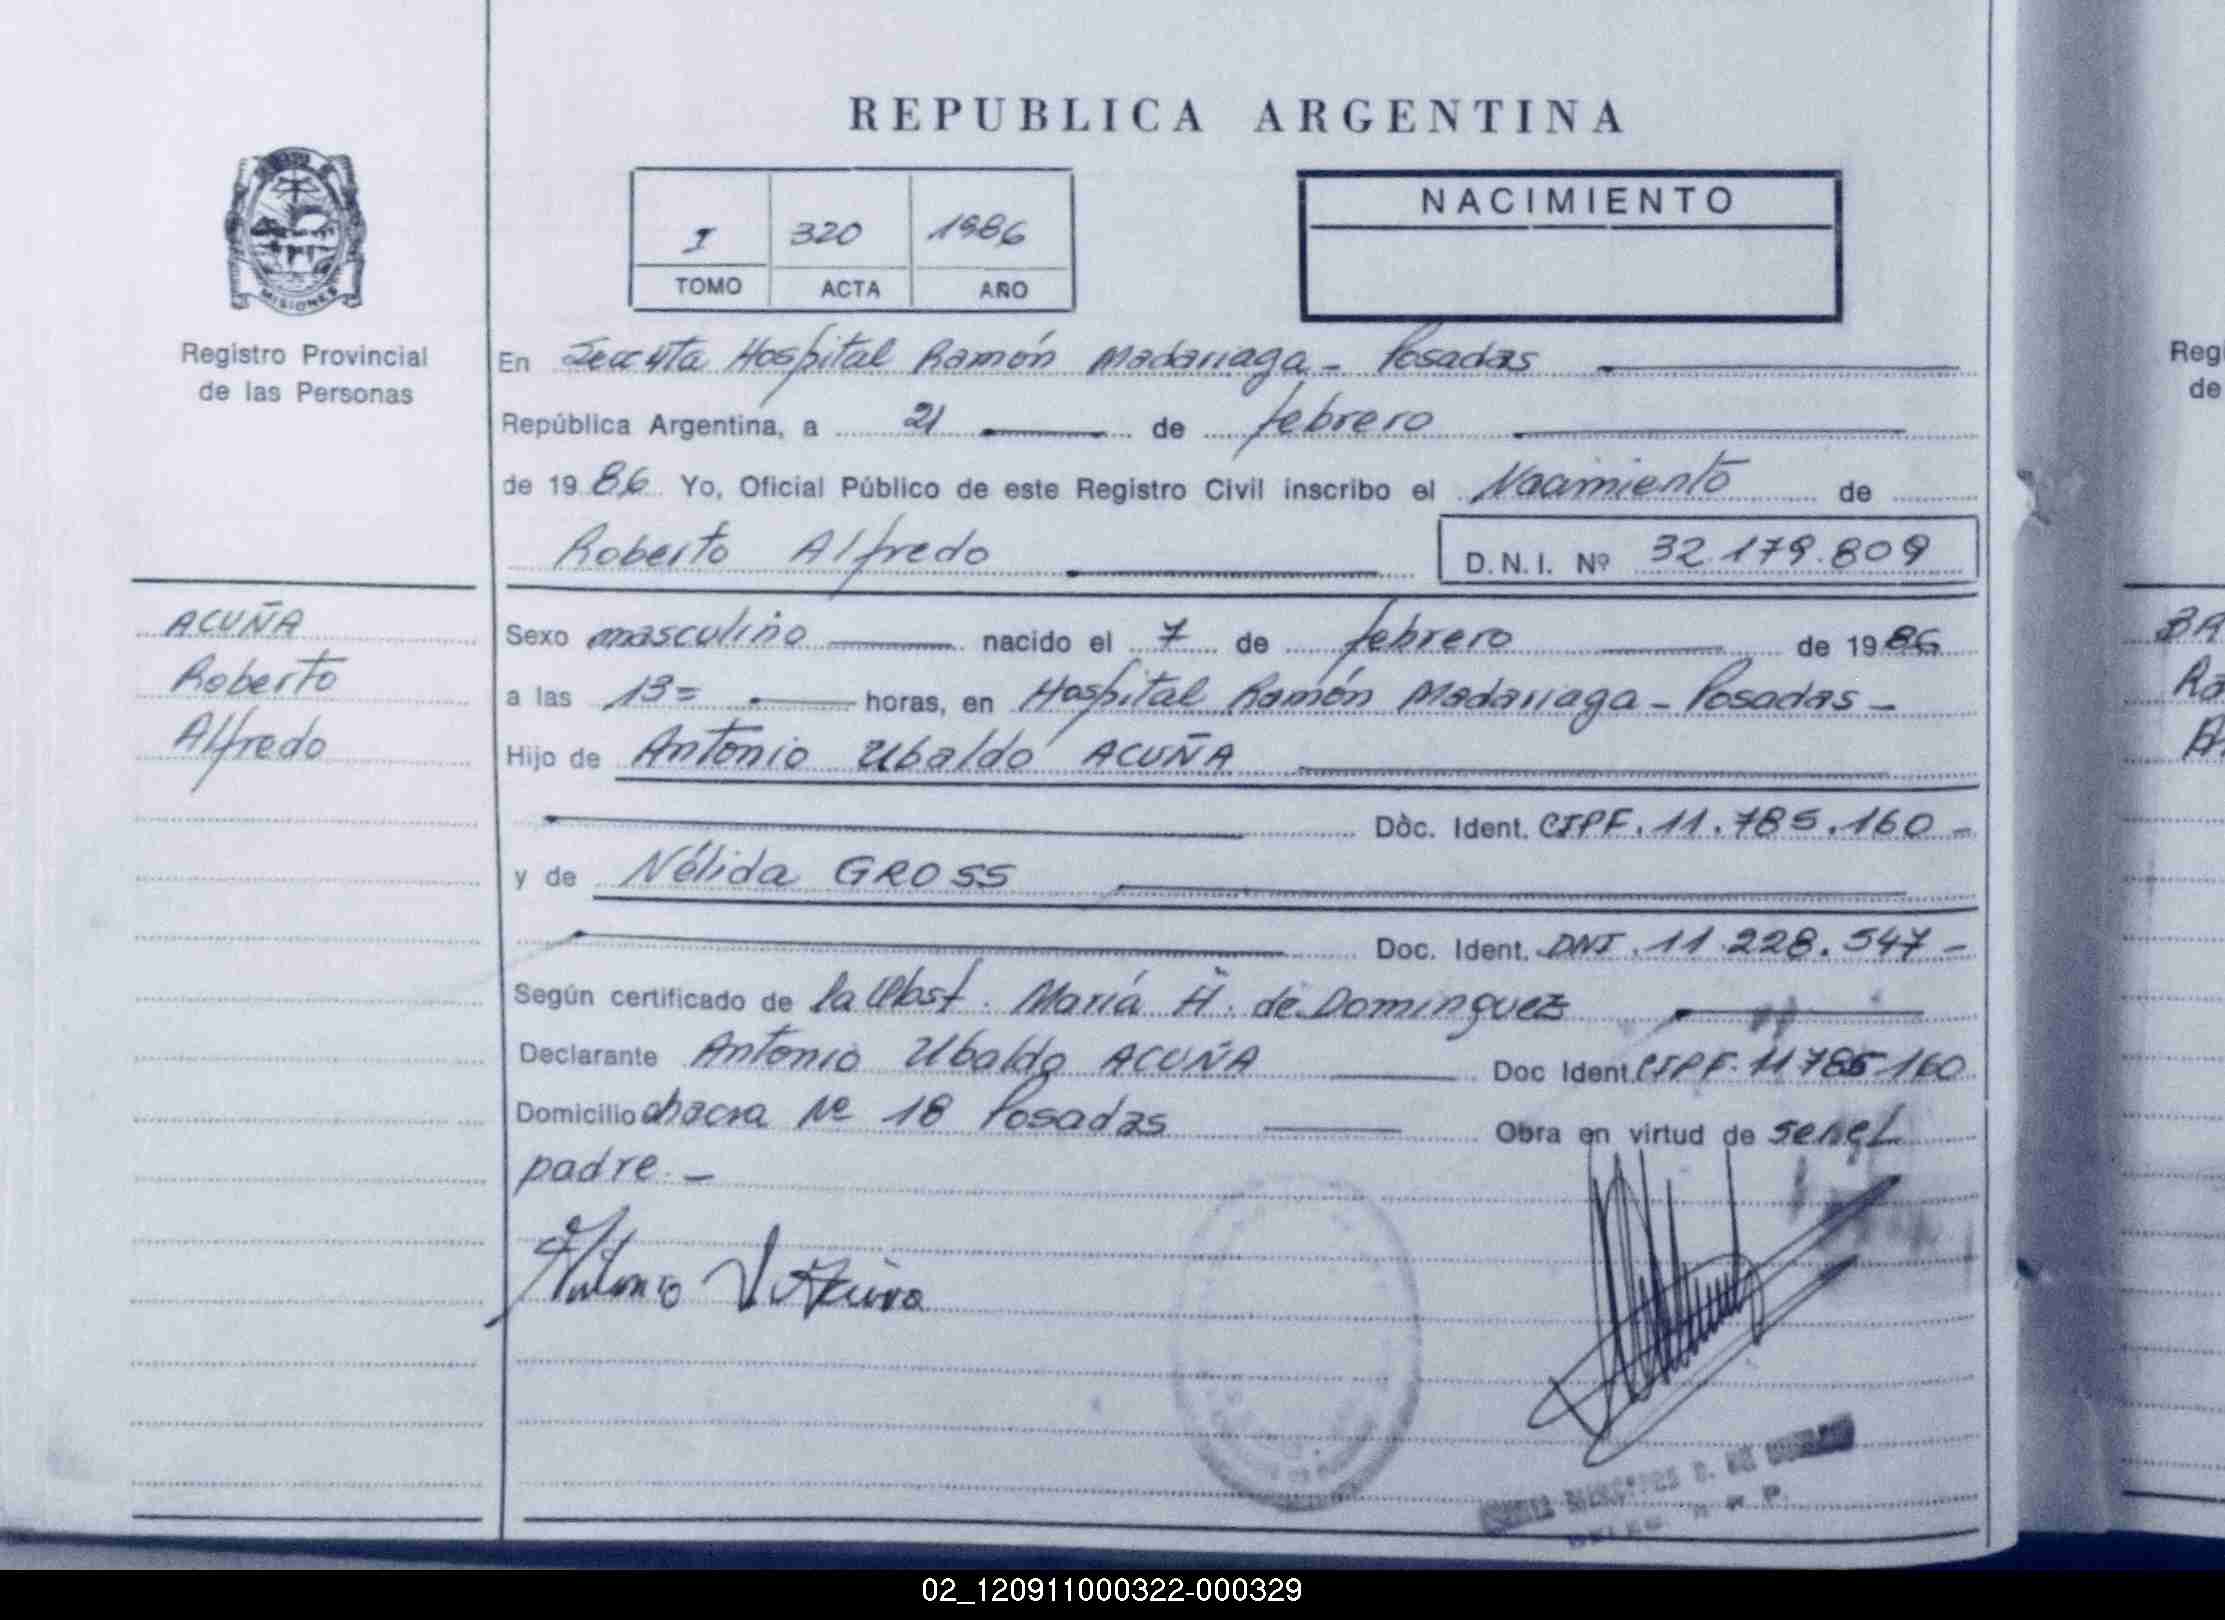 REPUBLICA ARGENTINA
I 320 1986
TOMO ACTA AÑO
NACIMIENTO
MISIONES
Registro Provincial
de las Personas
En Secc 4ta Hospital Ramón Madariaga - Posadas
República Argentina, a 21 de febrero
de 1986 Yo, Oficial Público de este Registro Civil inscribo el Nacimiento de
Roberto Alfredo D.N.I. Nº 32.179.809
ACUÑA
Roberto
Alfredo
Sexo masculino nacido el 7 de febrero de 1986
a las 13= horas, en Hospital Ramón Madariaga - Posadas -
Hijo de Antonio Ubaldo ACUÑA
Doc. Ident. CIPF. 11.785.160 -
y de Nélida GROSS
Doc. Ident. DNI. 11.228.547 -
Según certificado de la Obst. María H. de Dominguez
Declarante Antonio Ubaldo ACUÑA Doc Ident. CIPF. 11785160
Domicilio chacra Nº 18 Posadas Obra en virtud de ser el
padre. -
Antonio U Acuña
Regi
de
BA
Ra
02_120911000322-000329